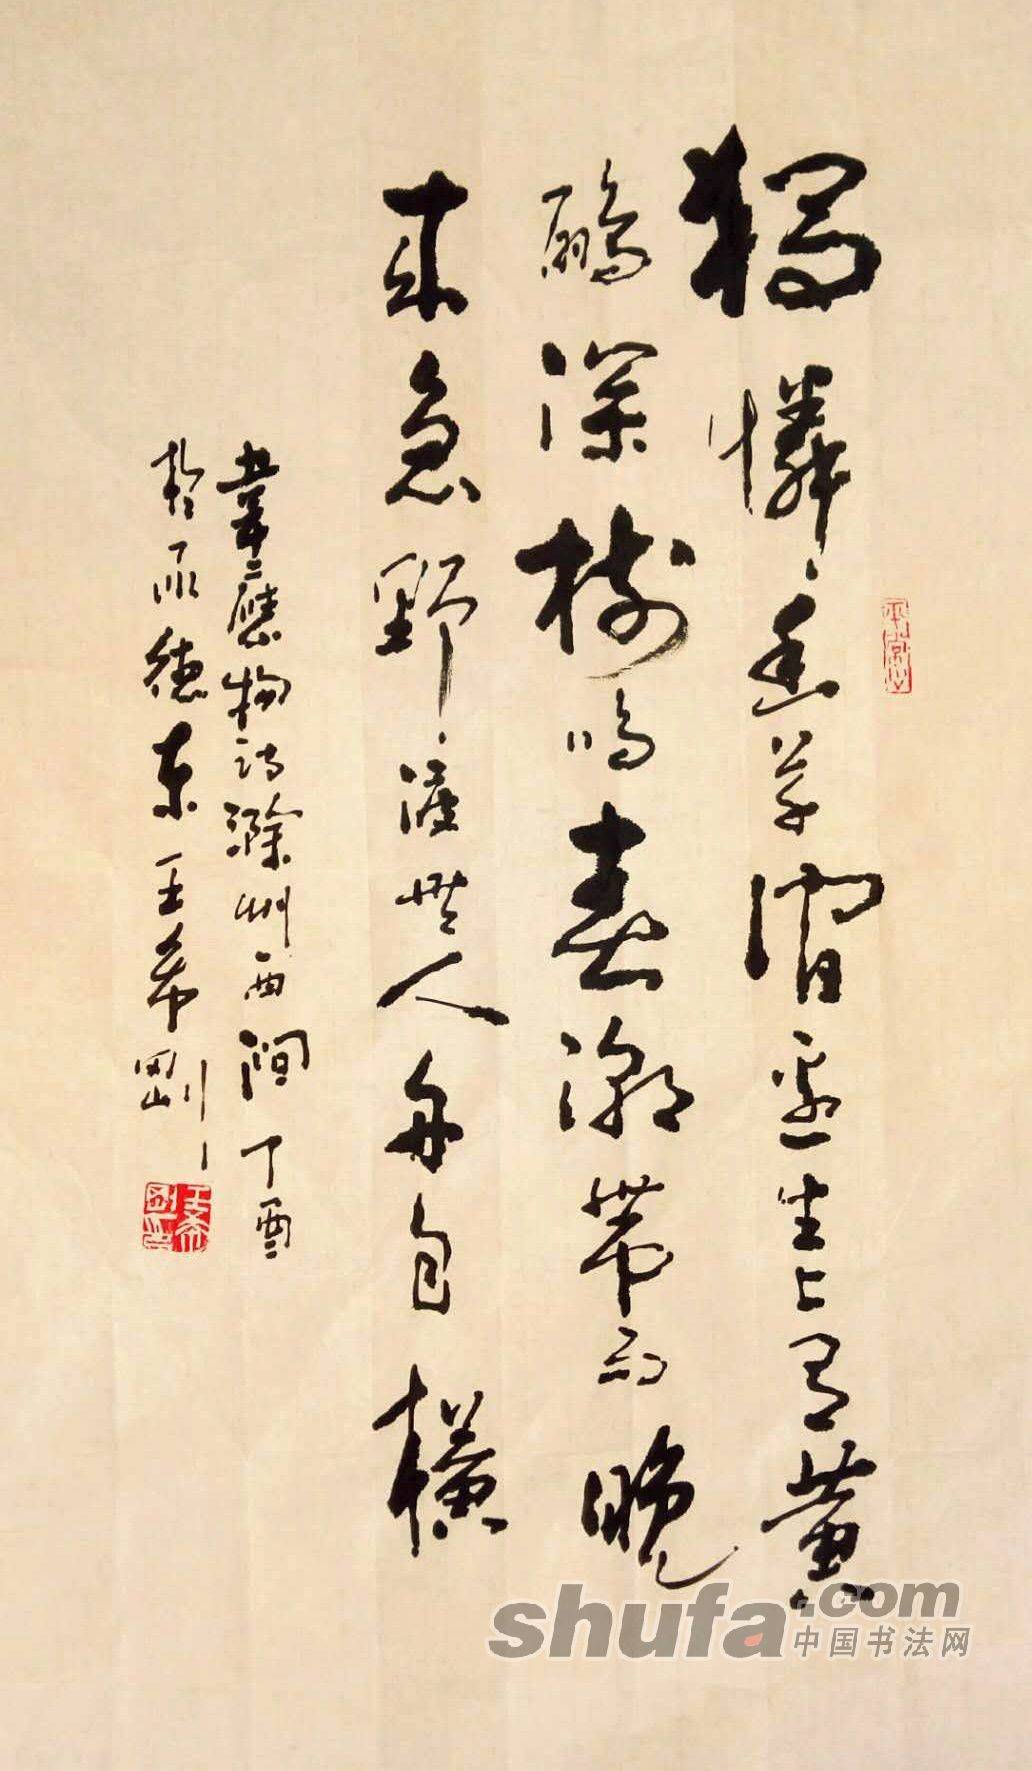 獨憐幽草澗邊生上有黃
鸝深樹鳴春潮帶雨晚
來急野渡無人舟自橫
韋應物詩滁州西澗丁酉
於承德東王希剛
王希剛印
shufa.com
中国书法网